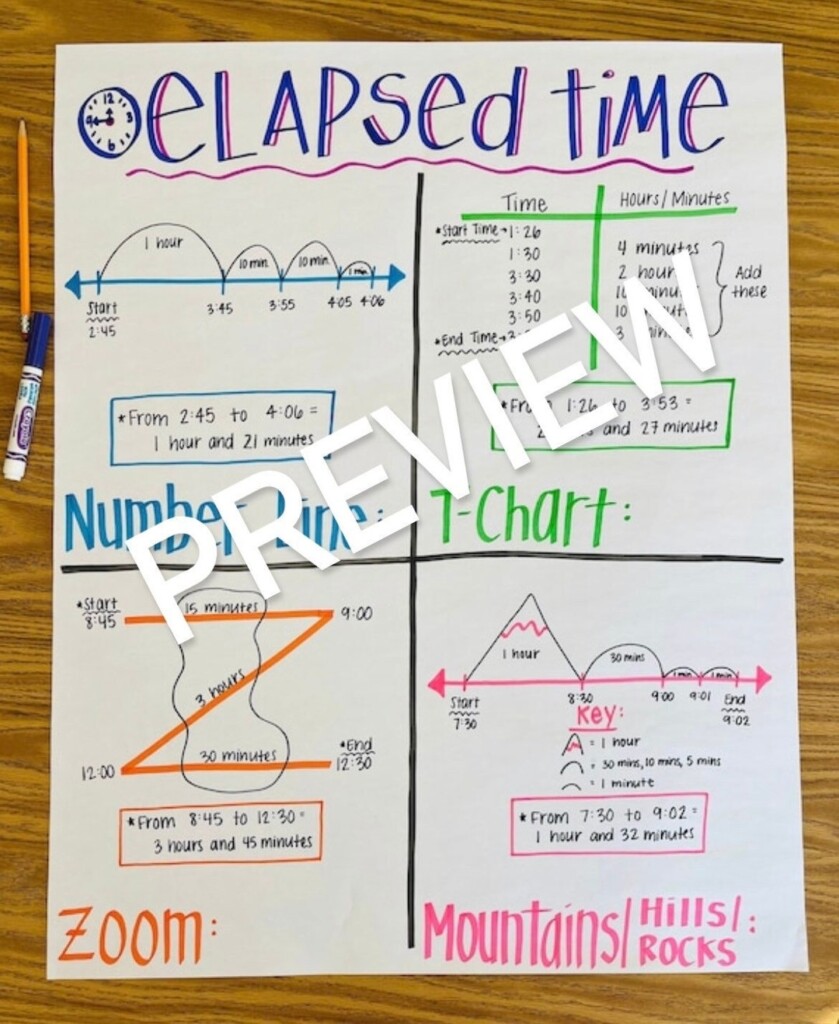 ELAPSED TIME
12
9 3
6
1 hour 10 min. 10 min. 1 min.
Start 3:45 3:55 4:05 4:06
2:45
*From 2:45 to 4:06 =
1 hour and 21 minutes
Number Line:
Time Hours/Minutes
*Start Time→1:26
1:30 4 minutes
3:30 2 hour
3:40 10
3:50 10
*End Time→ 3
Add
these
1:26 to 3:53 =
and 27 minutes
T-Chart:
*Start 15 minutes 9:00
8:45
3 hours
*End
12:00 30 minutes 12:30
*From 8:45 to 12:30 =
3 hours and 45 minutes
Zoom:
1 hour 30 mins 1 min 1 min
Start 8:30 9:00 9:01 End
7:30 9:02
Key:
= 1 hour
= 30 mins, 10 mins, 5 mins
= 1 minute
*From 7:30 to 9:02 =
1 hour and 32 minutes
Mountains/Hills/:
ROCKS
PREVIEW
Crayola